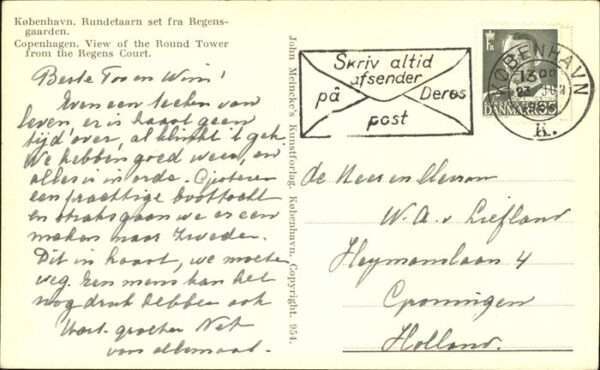 København. Rundetaarn set fra Regens-
gaarden.
Copenhagen. View of the Round Tower
from the Regens Court.
Beste Too en Wim!
Even een teeken van
leven, er is haast geen
tijd over, al klinkt 't gek.
We hebben goed weer, en
alles is in orde. Gisteren
een prachtige boottocht
en straks gaan we er een
maken naar Zweden.
Dit in haast, we moeten
weg. Een mens kan het
nog druk hebben ook
Hart. groeten
van allemaal.
John Meincke's Kunstforlag, København. Copyright. 954.
Skriv altid
afsender
på Deres
post
KØBENHAVN
K.
DANMARK
de Heer en Mevrouw
W. A. v. Liefland
Heymanslaan 4
Groningen
Holland.